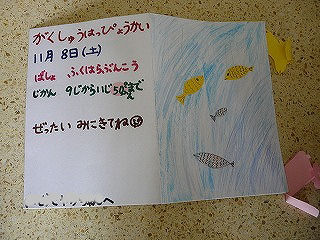 がくしゅうはっぴょうかい
11月 8日(土)
ばしょ ふくはらぶんこう
じかん 9じから11じ50ぷんまで
ぜったい みにきてね
へ